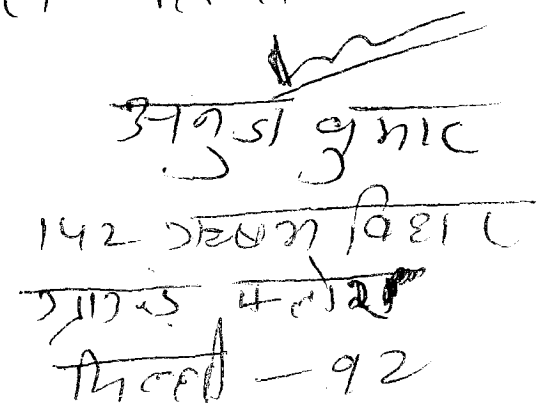 अनुज कुमार
142 ऋषभ विहार
ग्राउन्ड फ्लोर
दिल्ली - 92